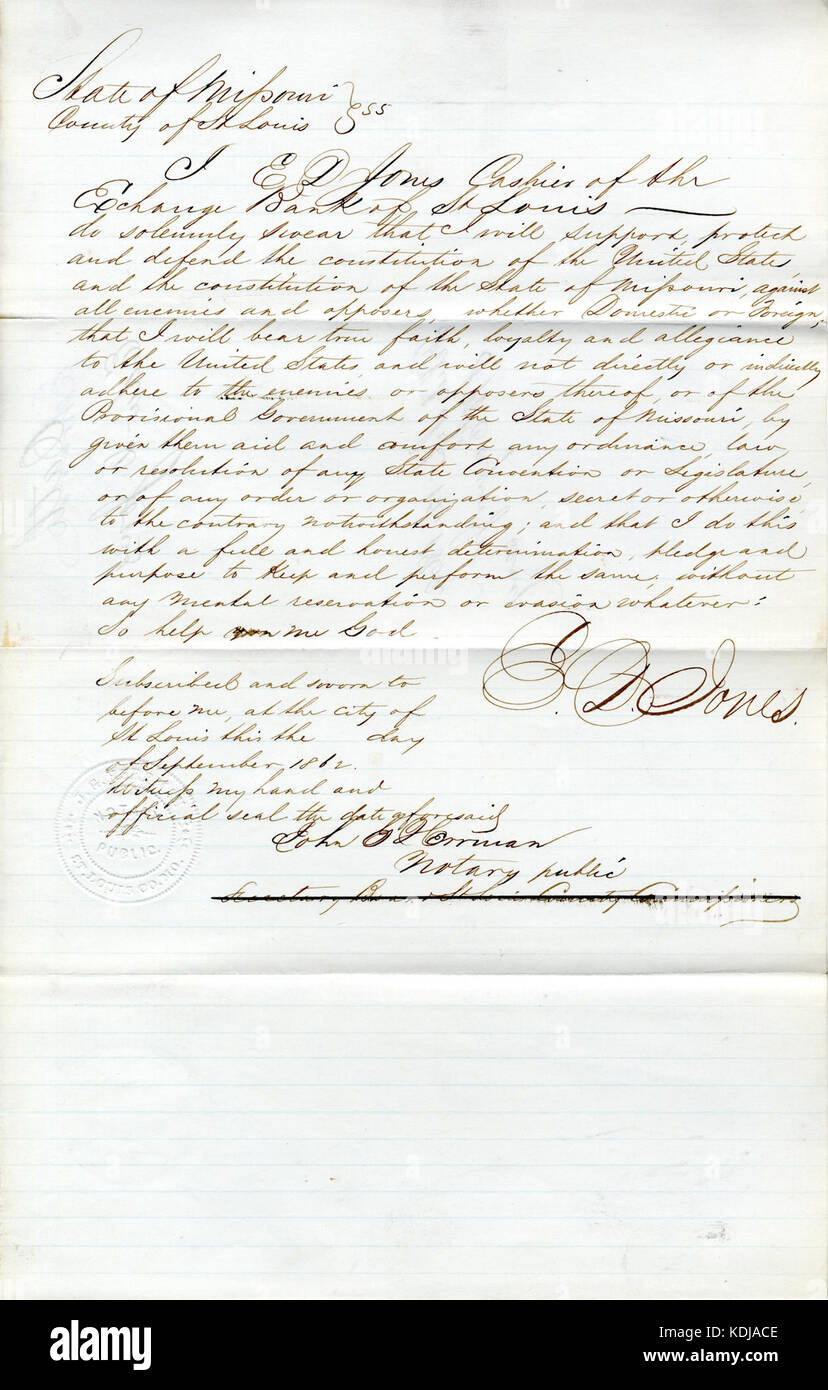 State of Missouri } ss
County of St Louis
I E D Jones Cashier of the
Exchange Bank of St Louis —
do solemnly swear that I will support, protect
and defend the constitution of the United States
and the constitution of the State of Missouri, against
all enemies and opposers, whether Domestic or Foreign;
that I will bear true faith, loyalty and allegiance
to the United States, and will not directly or indirectly
adhere to the enemies or opposers thereof, or of the
Provisional Government of the State of Missouri, by
given them aid and comfort any ordinance, law,
or resolution of any State Convention or Legislature,
or of any order or organization, secret or otherwise,
to the contrary notwithstanding; and that I do this
with a full and honest determination, pledge and
purpose to keep and perform the same, without
any mental reservation or evasion whatever:
So help me God
E. D. Jones.
Subscribed and sworn to
before me, at the city of
St Louis this the day
of September 1862.
Witness my hand and
official seal the date aforesaid
John Herrman
Notary public
Secretary St Louis County
PUBLIC
ST. LOUIS CO. MO.
alamy
Image ID: KDJACE
www.alamy.com